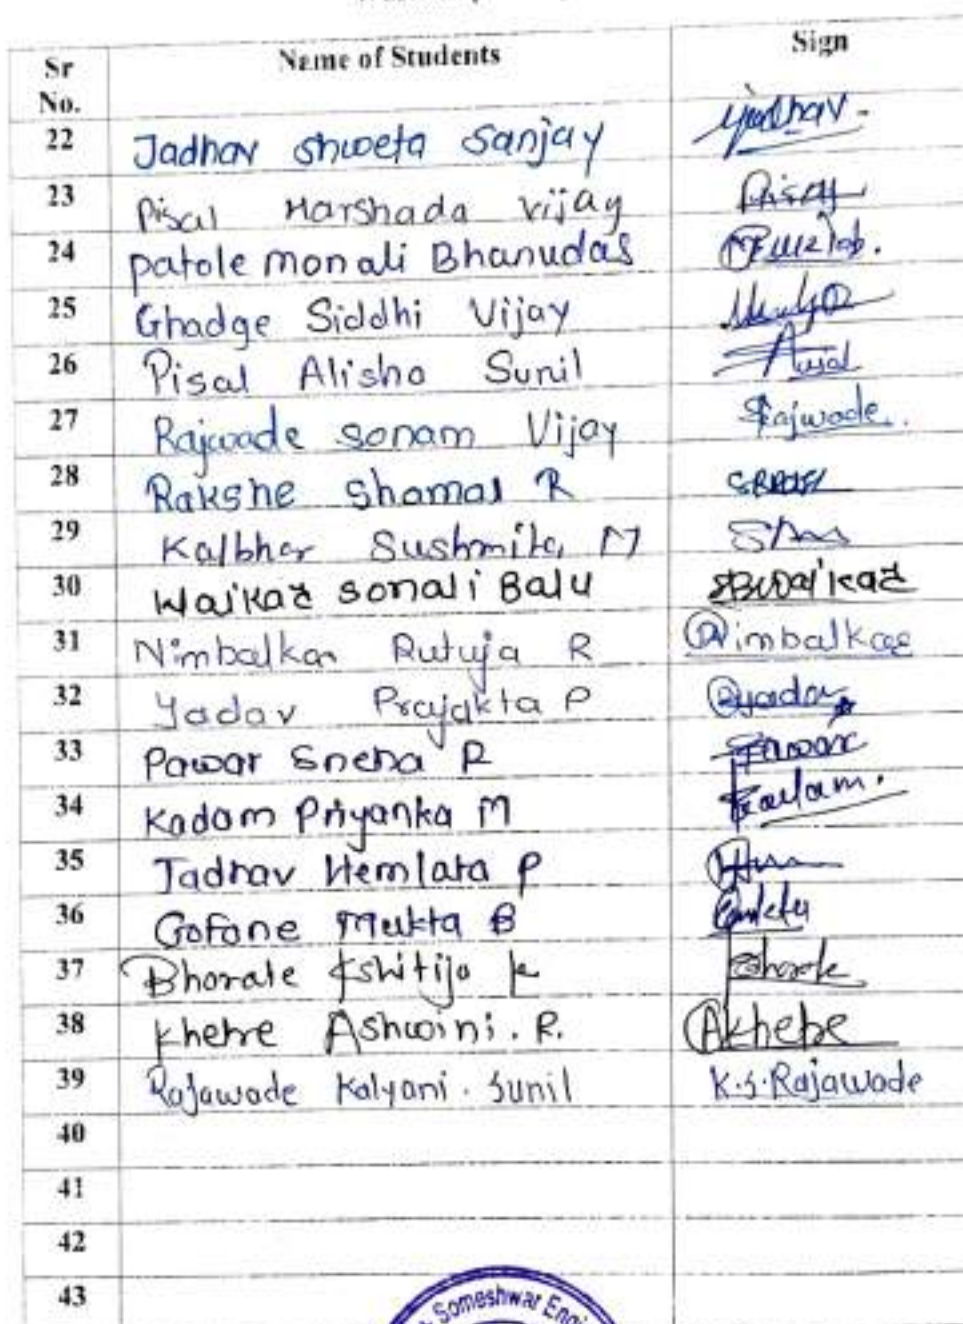 Sr No. Name of Students Sign
22 Jadhav Shweta Sanjay
23 Pisal Harshada Vijay Pisal
24 patole monali Bhanudas
25 Ghadge Siddhi Vijay
26 Pisal Alisha Sunil
27 Rajwade sonam Vijay Rajwade.
28 Rakshe Shamal R
29 Kalbhor Sushmita M
30 Waikar sonali Balu SBWaikar
31 Nimbalkar Rutuja R Nimbalkar
32 Yadav Prajakta P Pyadav
33 Pawar Sneha R Pawar
34 Kadam Priyanka M Kadam.
35 Jadhav Hemlata P
36 Gofane Mukta B
37 Bhorale Kshitija K Bhorale
38 Khetre Ashwini. R. AKhetre
39 Rajawade Kalyani. Sunil K.S.Rajawade
40
41
42
43
Someshwar